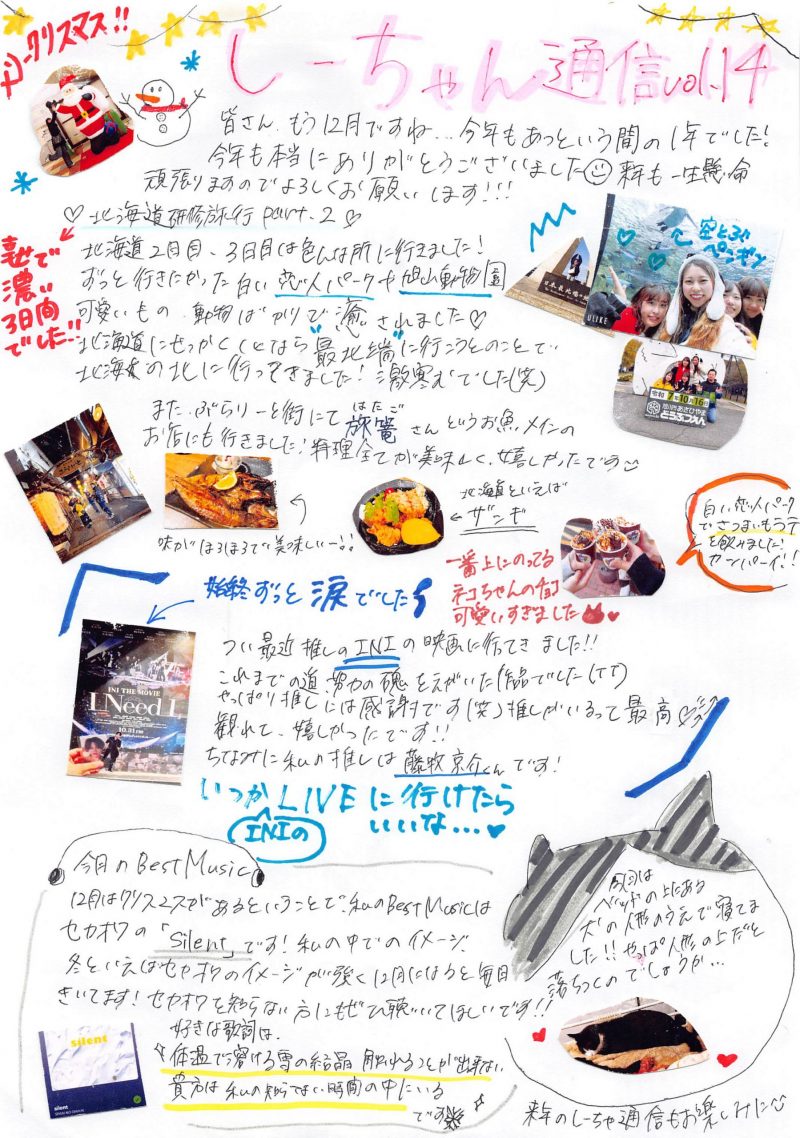 メリークリスマス!!
しーちゃん通信 vol.14
皆さん、もう12月ですね...今年もあっという間の1年でした!
今年も本当にありがとうございました 来年も一生懸命
頑張りますのでよろしくお願いします!!!
♡北海道研修旅行 part.2♡
濃い
3日間
でした!!
北海道2日目、3日目は色んな所に行きました!
ずっと行きたかった白い恋人パークや旭山動物園
可愛いもの、動物ばかりで癒されました♡
北海道にせっかくくるなら"最北端"に行こうとのことで
北海道の北に行ってきました!激寒むでした(笑)
空とぶ
ペンギン
ULIKE
日本最北端の地
令和7年10月16日
旭川市あさひやま
どうぶつえん
また、ぶらりーと街にて旅篭さんというお魚メインの
はたご
お店にも行きました!料理全てが美味しく、嬉しかったです
味がほろほろで美味しいー!!
北海道といえば
←ザンギ
白い恋人パーク
でさつまいもラテ
を飲みました!
カンパーイ!!
一番上にのってる
ネコちゃんのチョコ
可愛いすぎました
始終ずっと涙でした
INI THE MOVIE
I Need I
10.31
つい最近推しのINIの映画に行てきました!!
これまでの道、努力の塊をえがいた作品でした(TT)
やっぱり推しには感謝です(笑)推しがいるって最高♡
観れて、嬉しかったです!!
ちなみに私の推しは藤牧京介くんです!
いつかLIVEに行けたら
INIの
いいな...♥
今月のBest Music
12月はクリスマスがあるということで、私のBest Musicは
セカオワの「Silent」です!私の中でのイメージ、
冬といえばセカオワのイメージが強く12月になると毎日
きいてます!セカオワを知らない方にもぜひ聴いてほしいです!!
好きな歌詞は、
体温で溶ける雪の結晶 触れることが出来ない
貴方は私の知らない時間の中にいる
です
silent
silent
SEKAI NO OWARI
今回は
ベッドの上にある
犬の人形のうえで寝てま
した!!やっぱ人形の上だと
落ちつくのでしょうか...
来年のしーちゃ通信もお楽しみに